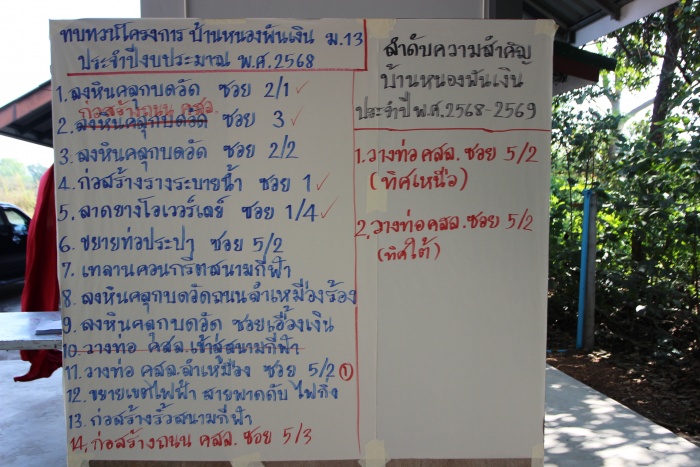 ทบทวนโครงการ บ้านหนองพันเงิน ม.13
ประจำปีงบประมาณ พ.ศ.2568
1. ลงหินคลุกบดอัด ซอย 2/1 ✓
ก่อสร้างถนน คสล.
2. ลงหินคลุกบดอัด ซอย 3 ✓
3. ลงหินคลุกบดอัด ซอย 2/2
4. ก่อสร้างรางระบายน้ำ ซอย 1 ✓
5. ลาดยางโอเวอร์เลย์ ซอย 1/4 ✓
6. ขยายท่อประปา ซอย 5/2
7. เทลานคอนกรีตสนามกีฬา
8. ลงหินคลุกบดอัดถนนลำเหมืองร้อง
9. ลงหินคลุกบดอัด ซอยเอื้องเงิน
10. วางท่อ คสล.เข้าสู่สนามกีฬา
11. วางท่อ คสล.ลำเหมือง ซอย 5/2 ①
12. ขยายเขตไฟฟ้า สายพาดดับ ไฟกิ่ง
13. ก่อสร้างรั้วสนามกีฬา
14. ก่อสร้างถนน คสล. ซอย 5/3
ลำดับความสำคัญ
บ้านหนองพันเงิน
ประจำปี พ.ศ.2568-2569
1. วางท่อ คสล. ซอย 5/2
(ทิศเหนือ)
2. วางท่อ คสล. ซอย 5/2
(ทิศใต้)